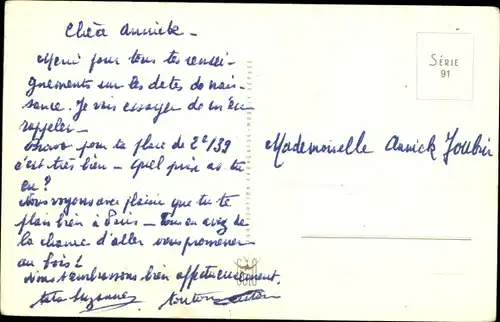 Chère Annick -
Merci pour tous tes rensei-
gnements sur les dates de nais-
sance. Je vais essayer de m'en
rappeler -
Bravo pour ta place de 2e/39
c'est très bien - Quel prix as-tu
eu?
Nous voyons avec plaisir que tu te
plais bien à Paris - Vous en avez de
la chance d'aller vous promener
au bois!
Nous t'embrassons bien affectueusement.
tata Suzanne tonton
SÉRIE
91
Mademoiselle Annick